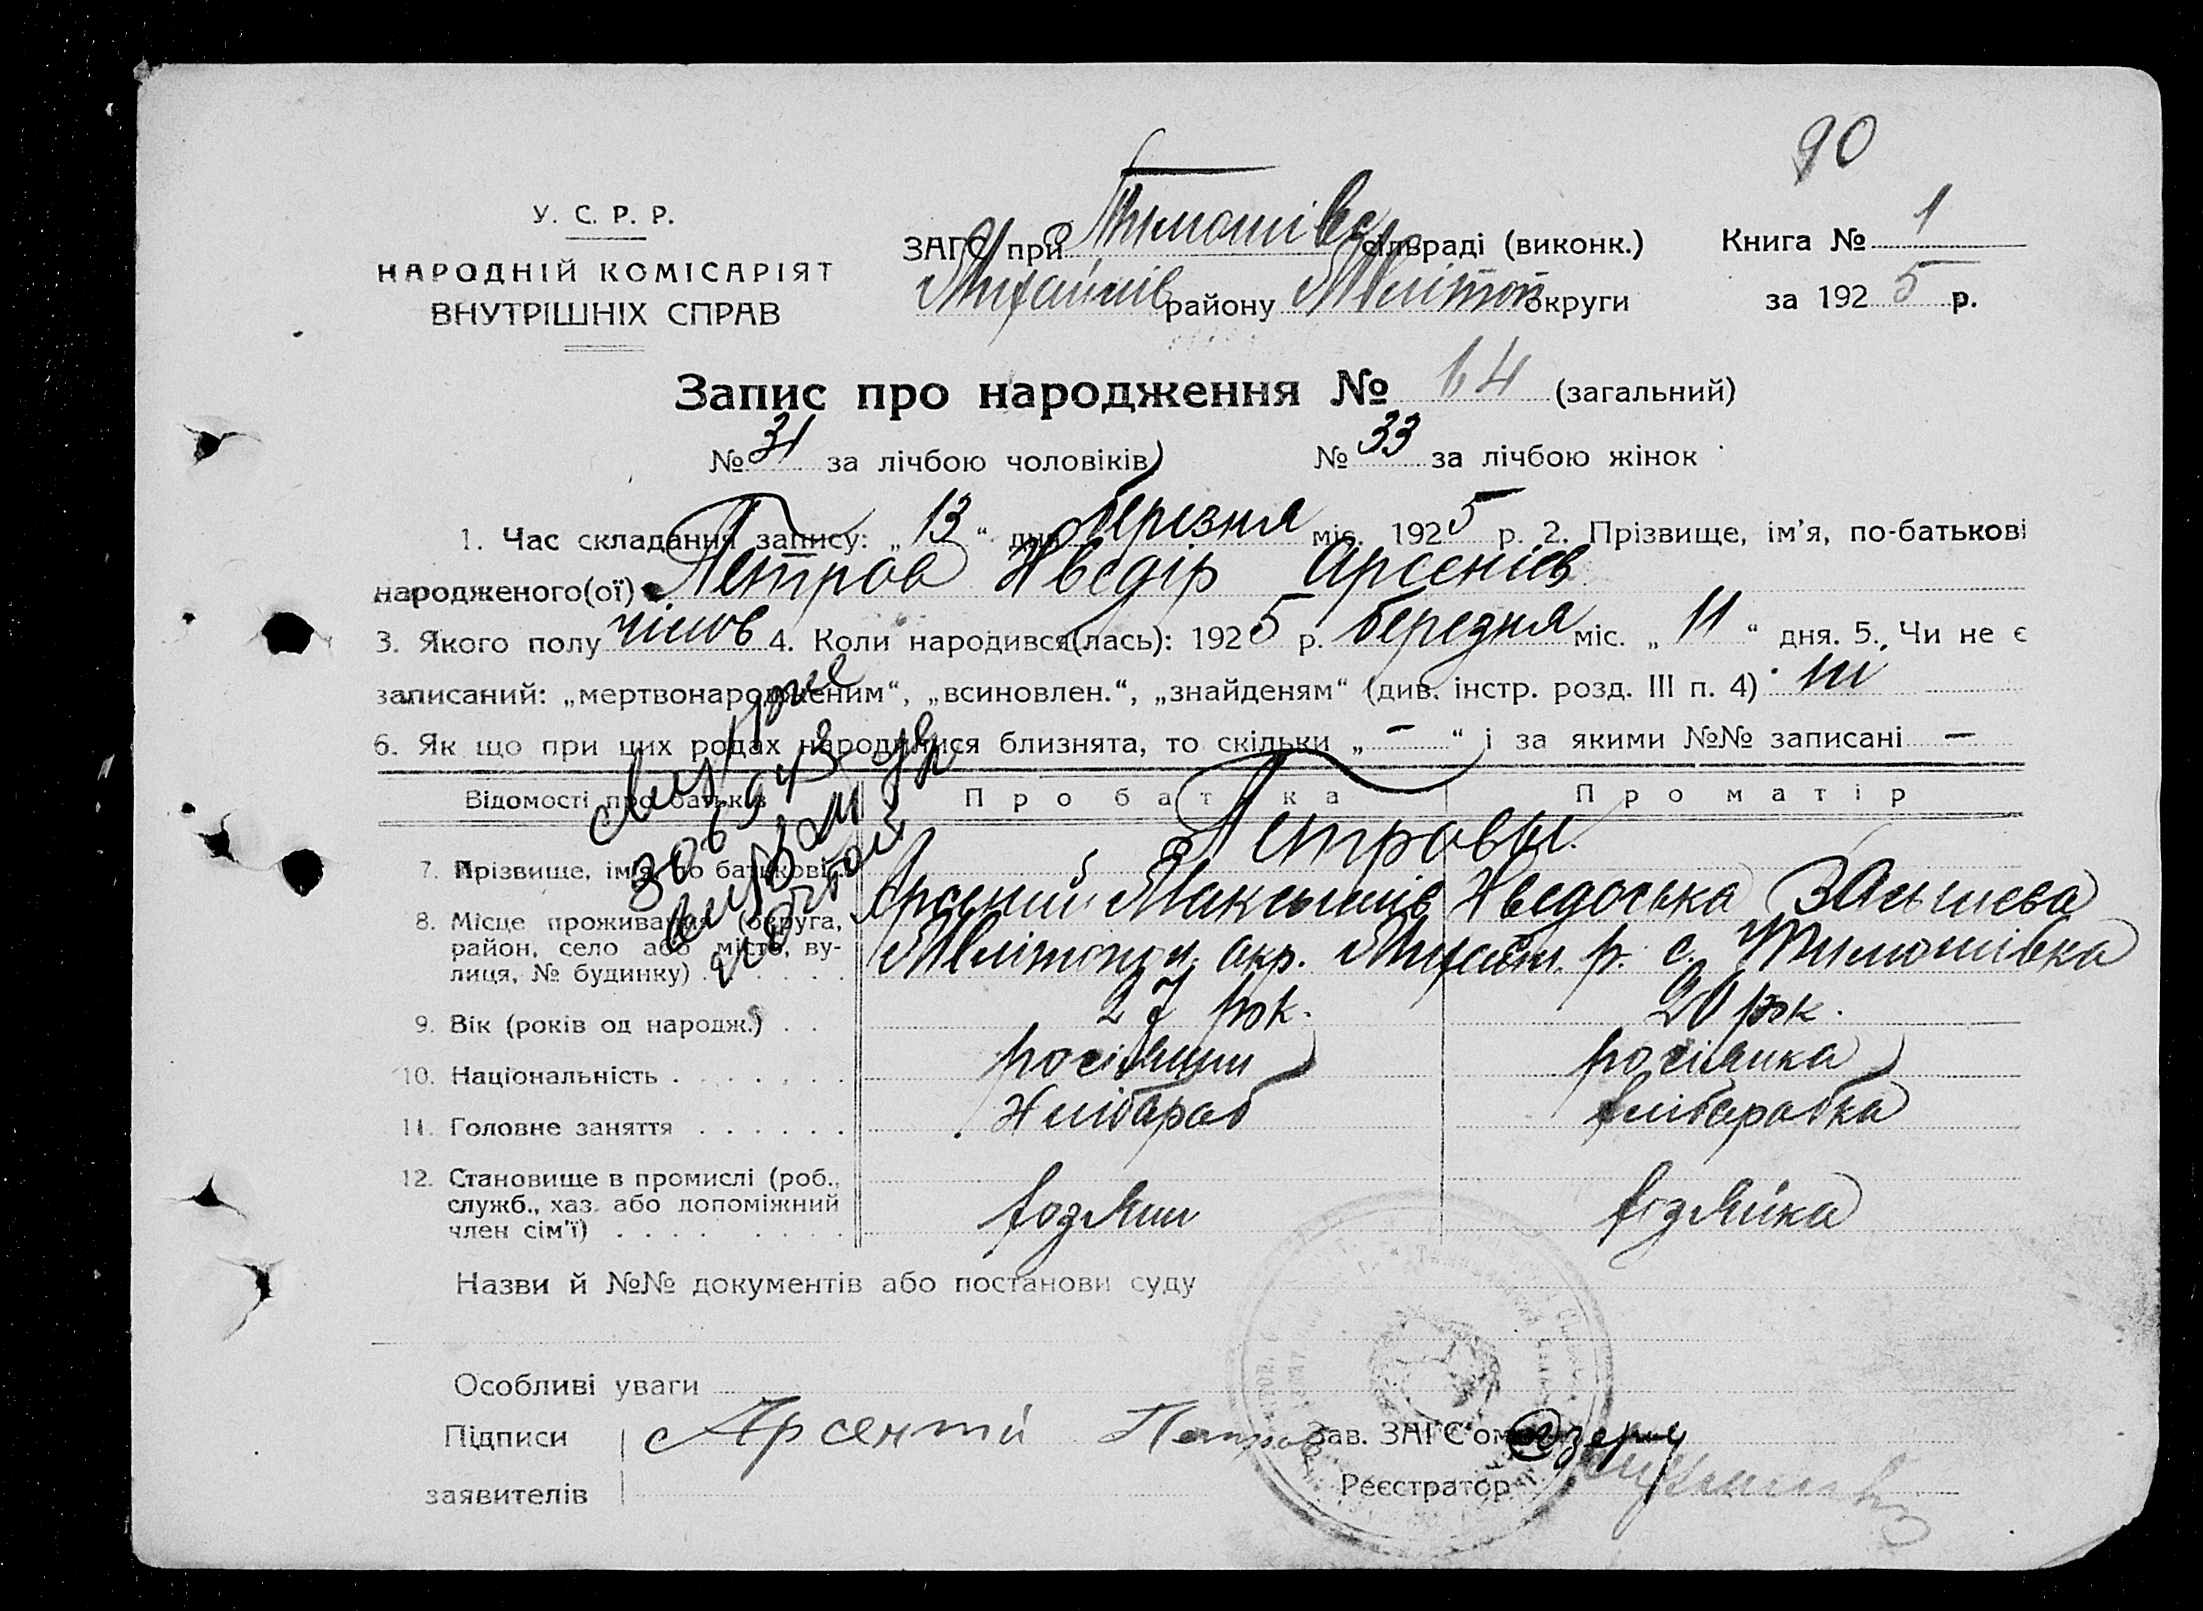 90
У. С. Р. Р.
НАРОДНІЙ КОМІСАРІЯТ
ВНУТРІШНІХ СПРАВ
ЗАГС при Тимошівс сільраді (виконк.)
Михайлів району Мелітоп округи
Книга № 1
за 1925 р.
Запис про народження № 64 (загальний)
№ 31 за лічбою чоловіків № 33 за лічбою жінок
1. Час складання запису: „13“ дня березня міс. 1925 р. 2. Прізвище, ім'я, по-батькові
народженого(ої) Петров Хведір Арсеніев
3. Якого полу чілов 4. Коли народився(лась): 1925 р. березня міс. „11“ дня. 5. Чи не є
записаний: „мертвонародженим“, „всиновлен.“, „знайденям“ (див. інстр. розд. III п. 4) ні
6. Як що при цих родах народилися близнята, то скільки „—“ і за якими №№ записані —
Відомості про батьків Про батька Про матір
7. Прізвище, ім'я, по батькові Петровы
Арсений Максимів Хведоська
8. Місце проживання (округа, район, село або місто, ву-
лиця, № будинку) окр. р. с. Тимошівка
9. Вік (років од народж.) 27 рок. 20 рок.
10. Національність росіянин росіянка
11. Головне заняття Хлібароб хлібаробка
12. Становище в промислі (роб.,
служб., хаз. або допоміжний
член сім'ї) хозяин хозяйка
Назви й №№ документів або постанови суду
Особливі уваги
Підписи Арсентий Петров Зав. ЗАГС'ом
заявителів Реєстратор